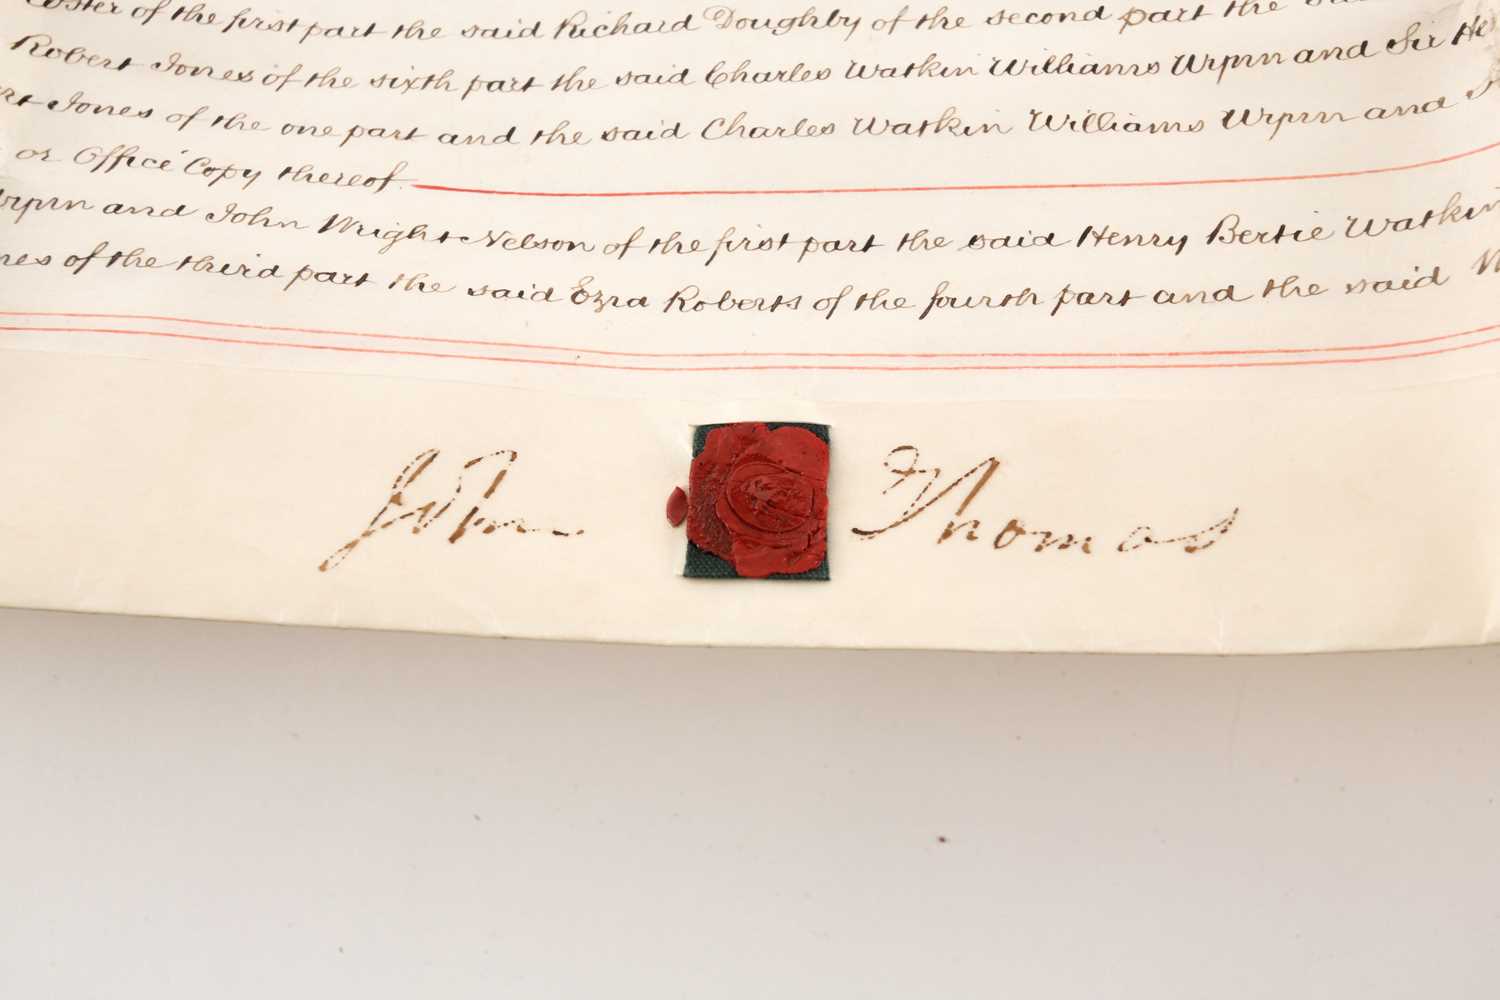 oster of the first part the said Richard Doughby of the second part the
Robert Jones of the sixth part the said Charles Watkin Williams Wynn and Sir He
rt Jones of the one part and the said Charles Watkin Williams Wynn and
or Office Copy thereof.
ynn and John Wright Nelson of the first part the said Henry Bertie Watkin
nes of the third part the said Ezra Roberts of the fourth part and the said
John Thomas